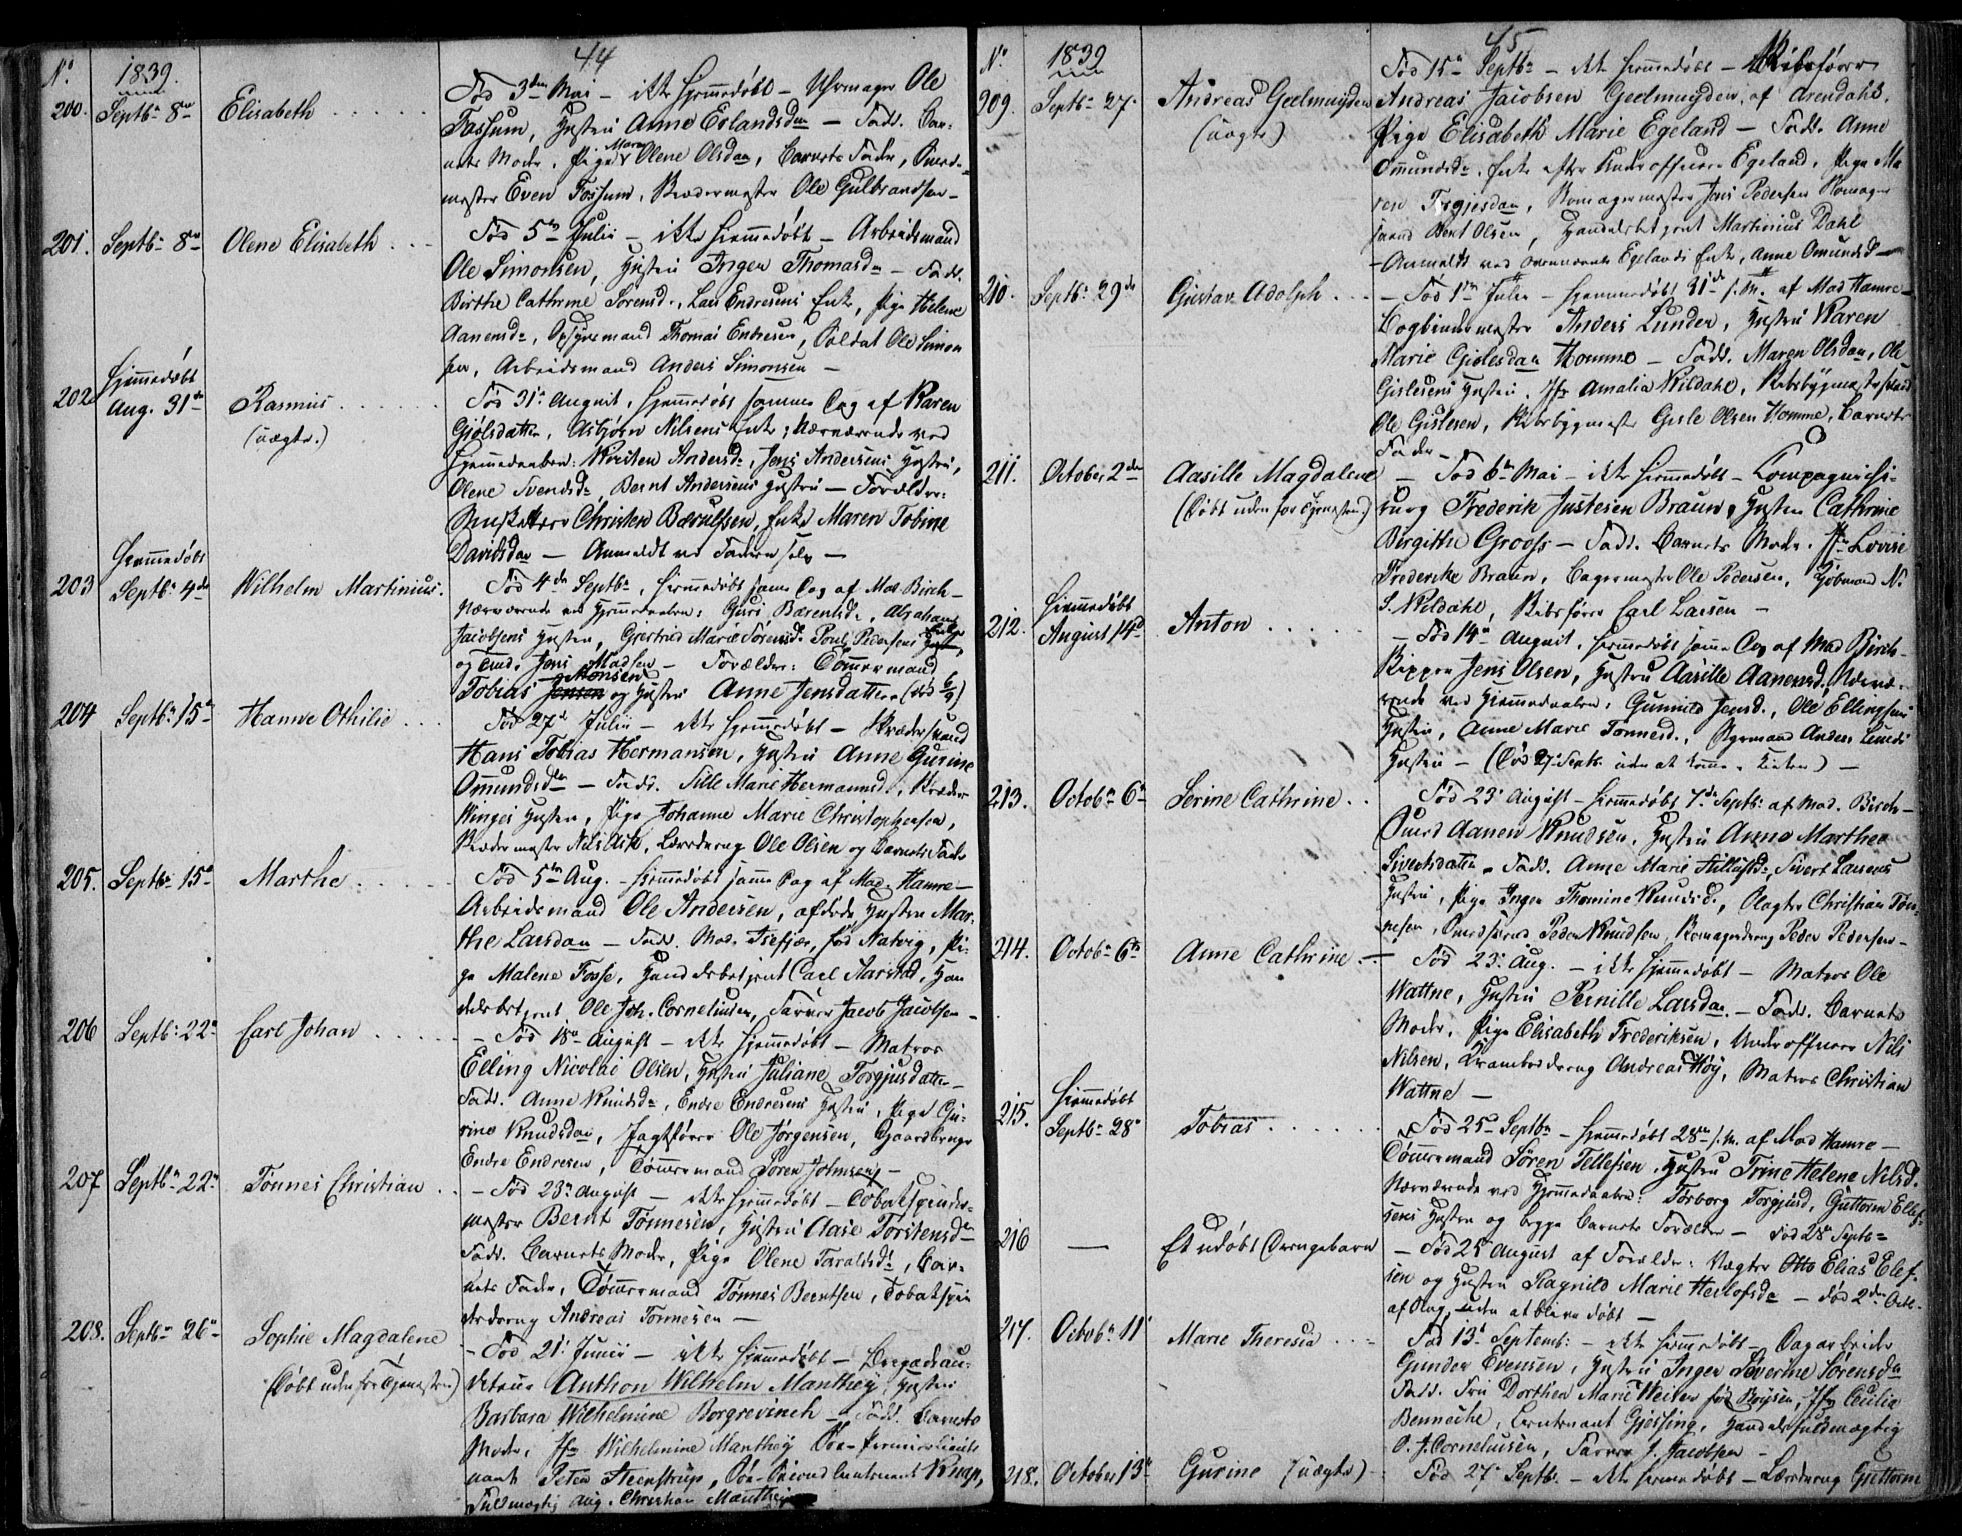 44
No. 1839.
200. Septbr 8de Elisabeth
Fød 3die Mai – ikke hjemmedøbt – Uhrmager Ole
Fossum, Hustru Anne Erlandsdr – Fadd. Bar-
nets Moder, Pige Maren Olene Olsdatter, Barnets Fader,
mester Even Fossum, Skrædermester Ole Gulbrandsen –
201. Septbr 8de Olene Elisabeth
Fød 5te Julii – ikke hjemmedøbt – Arbeidsmand
Ole Simonsen, Hustru Inger Thomasdr – Fadd.
Birthe Cathrine Sørensd., Lars Endresens Enke, Pige Helene
Aanensdr, Opsynsmand Thomas Endresen, Soldat Ole Simon
sen, Arbeidsmand Anders Simonsen –
202 Hjemmedøbt
Aug. 31te Rasmus
(uægte.)
Fød 31te August, hjemmedøbt samme Dag af Karen
Gjølsdatter, Asbjørn Nilsens Enke; Nærværende ved
Hjemmedaaben: Kirsten Andersdr, Jens Andersens Hustru,
Olene Svendsdr, Bernt Andersens Hustru – Forældre:
Musketeer Christen Bærulfsen, Enke Maren Tobine
Davidsdr – Anmeldt ved Faderen selv –
203 Hjemmedøbt
Septbr 4de Wilhelm Martinius.
Fød 4de Septbr, hjemmedøbt samme Dag af Mad. Birch –
Nærværende ved Hjemmedaaben: Guri Bærentsdr, Abraham
Jacobsens Hustru, Gjertrud Marie Sørensdr Poul Pedersens Enke,
og Jens Madsen – Forældre: Tømmermand
Tobias Monsen og Hustru Anne Jensdatter (død 6/9)
204 Septbr 15de Hanne Othilie
Fød 27de Julii – ikke hjemmedøbt – Skrædersvend
Hans Tobias Hermansen, Hustru Anne Gurine
Omundsdr – Fadd. Sille Marie Hermansd., Skræder
Ringes Hustru, Pige Johanne Marie Christophersen,
Skrædermester Nils Ask, Læredreng Ole Olsen og Barnets Fader
205. Septbr 15de Marthe
Fød 5te Aug. – hjemmedøbt samme Dag af Mad. Hamre –
Arbeidsmand Ole Andersen, afdøde Hustru Mar-
the Larsdatter – Fadd. Mad. Tsefjær, fød Natvig, Pi-
ge Malene Fosse, Handelsbetjent Carl Aarstad, Han
delsbetjent Ole Joh. Corneliusen, Farver Jacob Jacobsen –
206 Septbr 22de Carl Johan
– Fød 18de August – ikke hjemmedøbt – Matros
Elling Nicolai Olsen, Hustru Juliane Torgjusdatter –
Fadd. Anne Knudsdr, Endre Endresens Hustru, Pige Gu-
rine Knudsdatter, Jagtfører Ole Jørgensen, Gaardbruger
Endre Endresen, Tømmermand Søren Johnsen –
207 Septbr 22de Tønnes Christian
– Fød 23de August – ikke hjemmedøbt – Tobakspinder-
mester Bernt Tønnesen, Hustru Aase Torstensdr
Fadd. Barnets Moder, Pige Olene Taraldsdr, Bar-
nets Fader, Tømmermand Tønnes Berntsen, Tobakspin
derdreng Andreas Tønnesen –
208. Septbr 26de Sophie Magdalene
(Døbt uden for Tjenesten)
– Fød 21de Junii – ikke hjemmedøbt – Brigadeau-
diteur Anthon Wilhelm Manthey, Hustru
Barbara Wilhelmine Borgrevinck – Fadd. Barnets
Moder, Jfr Wilhelmine Manthey Søe-Premierlieute
nant Peter Steenstrup, Søe-Second Lieutenant Knap,
Fuldmægtig Aug. Christian Manthey
45
No. 1839
209. Septbr 27. Andreas Geelmuyden
(uægte)
Fød 15de Septbr – ikke hjemmedøbt – Skibsfører
Andreas Jacobsen Geelmuyden, af Arendahl,
Pige Elisabeth Marie Egeland – Fadd. Anne
Omundsdr, Enke efter Underofficeer Egeland, Pige Ma
ren Torgjesdatter, Skomagermester Jens Pedersen Skomager
svend Bent Olsen, Handelsbetjent Martinius Dahl
– Anmeldt ved ovennævnte Egelands Enke, Anne Omundsd –
210. Septbr 29de Gustav Adolph
– Fød 1ste Julii – hjemmedøbt 31te s. M. af Mad Hamre –
Bogbindermester Anders Lunder, Hustru Karen
Marie Gislesdatter Homme – Fadd. Maren Olsdatter, Ole
Gislesens Hustru, Jfr Amalia Kildahl, Skibsbygmestersvend
Ole Gislesen, Skibsbygmester Gisle Olsen Homme, Barnets
Fader –
211. October 2den Aasille Magdalene
(Døbt uden for Tjenesten)
– Fød 6te Mai – ikke hjemmedøbt – Compagniechi-
rurg Frederik Justesen Braun, Hustru Cathrine
Birgithe Grooss – Fadd. Barnets Moder, Jfr Lovise
Frederike Braun, Bagermester Ole Pedersen, Kjøbmand N.
S. Kildahl, Skibsfører Carl Larsen –
212. Hjemmedøbt
August 14de Anton
– Fød 14de August, hjemmedøbt samme Dag af Mad Birch –
Skipper Jens Olsen, Hustru Aasille Aanensd, Nærvæ-
rende ved Hjemmedaaben: Gunnild Jensd., Ole Ellingsens
Hustru, Anne Marie Tønnesd., Styrmand Anders Lunds
Hustru – (Død 27 Septbr uden at komme i Kirken) –
213. Octobr 6te Serine Cathrine
Fød 23de August – hjemmedøbt 7de Septbr af Mad. Birch –
Smed Aanen Knudsen, Hustru Anne Marthea
Sivertsdatter – Fadd. Anne Marie Tellefsdr, Sivert Larsens
Hustru, Pige Inger Thomine Knudsd., Vægter Christian Tøn-
nesen, Smedsvend Peder Knudsen, Skomagerdreng Peder Pedersen –
214. Octobr 6te Anne Cathrine
– Fød 23de Aug. – ikke hjemmedøbt – Matros Ole
Wattne, Hustru Pernille Larsdatter – Fadd. Barnets
Moder, Pige Elisabeth Frederiksen, Underofficeer Nils
Nilsen, Kramboddreng Andreas Høy, Matros Christian
Wattne –
215. Hjemmedøbt
Septbr 28de Tobias
Fød 25de Septbr – hjemmedøbt 28de s. M. af Mad Hamre –
Tømmermand Søren Tellefsen, Hustru Trine Helene Nilsd.
Nærværende ved Hjemmedaaben: Torborg Torgjusd, Guttorm Ellef-
sens Hustru og begge Barnets Forældre – død 28de Septbr
216 — Et udøbt Drengebarn
– Fød 25 August af Forældre: Vægter Otto Elias Elef-
sen og Hustru Ragnild Marie Herlofsdr – død 2den Octbr
af Slag, uden at blive døbt –
217. Octobr 11te Marie Theresia
Fød 13de Septemb: – ikke hjemmedøbt – Dagarbeider
Gunder Evensen, Hustru Inger Severine Sørensdr
Fadd. Fru Dorthea Marie Weiler født Boysen, Jfr Cecilia
Benneche, Lieutenant Gjessing, Handelsfuldmægtig
O. J. Corneliusen, Farver J. Jacobsen –
218. October 13de Gurine (uægte)
Fød 27de Septbr – ikke hjemmedøbt – Læredreng Guttorm